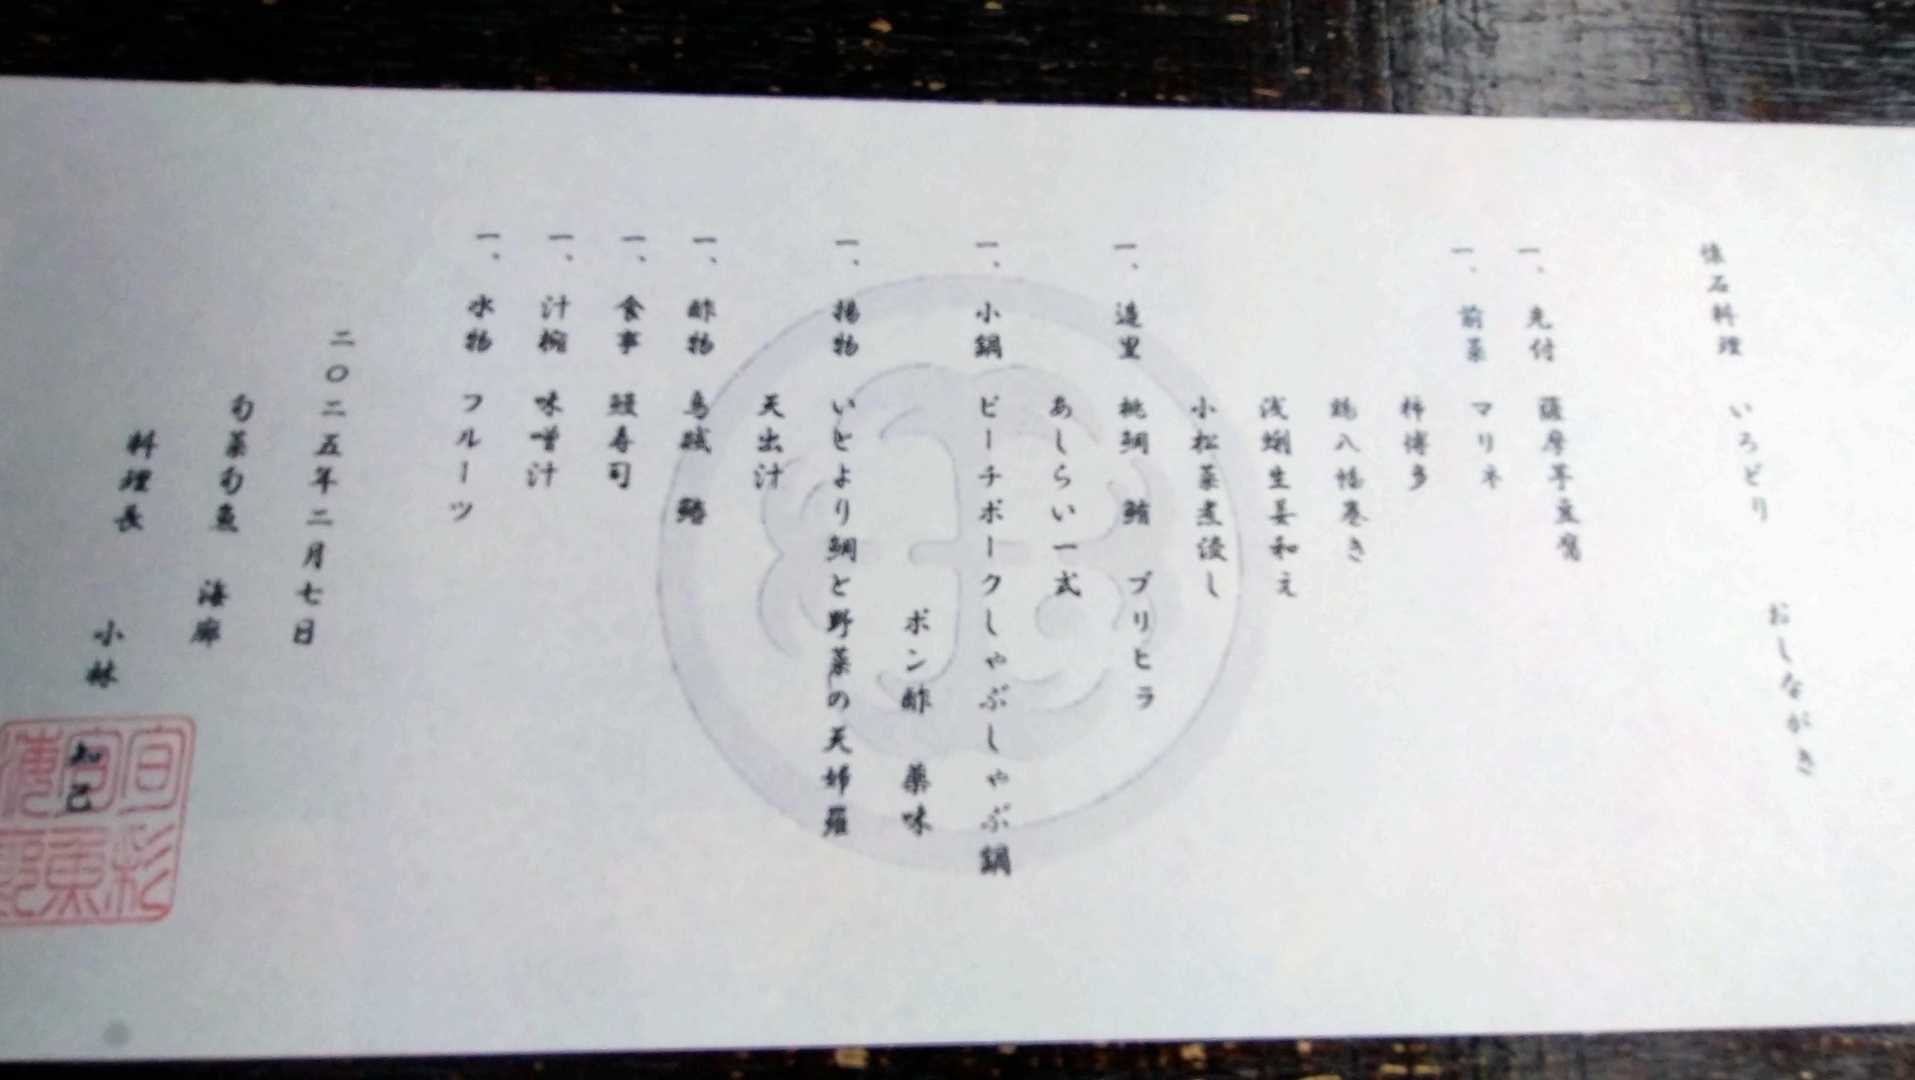 懐石料理 いろどり おしながき
一、先付 薩摩芋豆腐
一、前菜 マリネ
柿博多
鶏八幡巻き
浅蜊生姜和え
小松菜煮浸し
一、造里 桃鯛 鮪 ブリヒラ
あしらい一式
一、小鍋 ピーチポークしゃぶしゃぶ鍋
ポン酢 薬味
一、揚物 いとより鯛と野菜の天婦羅
天出汁
一、酢物 烏賊 鰆
一、食事 鰻寿司
一、汁椀 味噌汁
一、水物 フルーツ
二〇二五年二月七日
旬菜旬魚 海廊
料理長 小林 知己